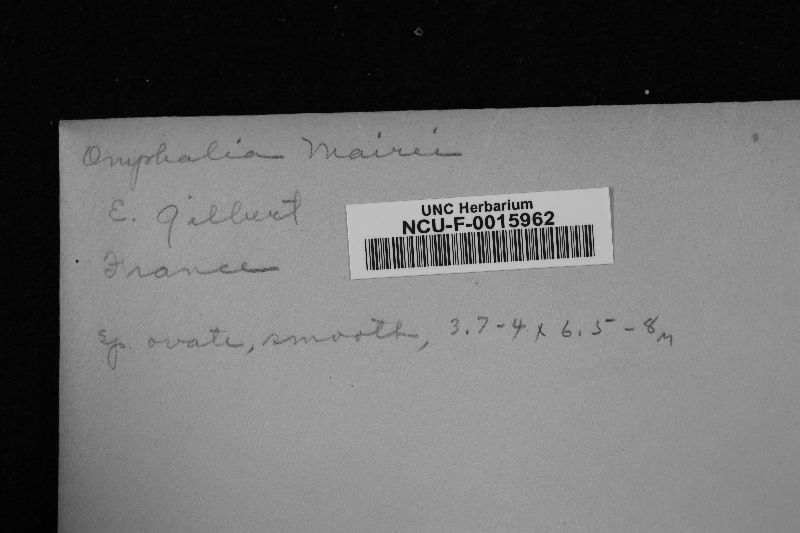 Omphalia Mairei
E. Gilbert
France
UNC Herbarium
NCU-F-0015962
Sp. ovate, smooth, 3.7-4 x 6.5-8µ